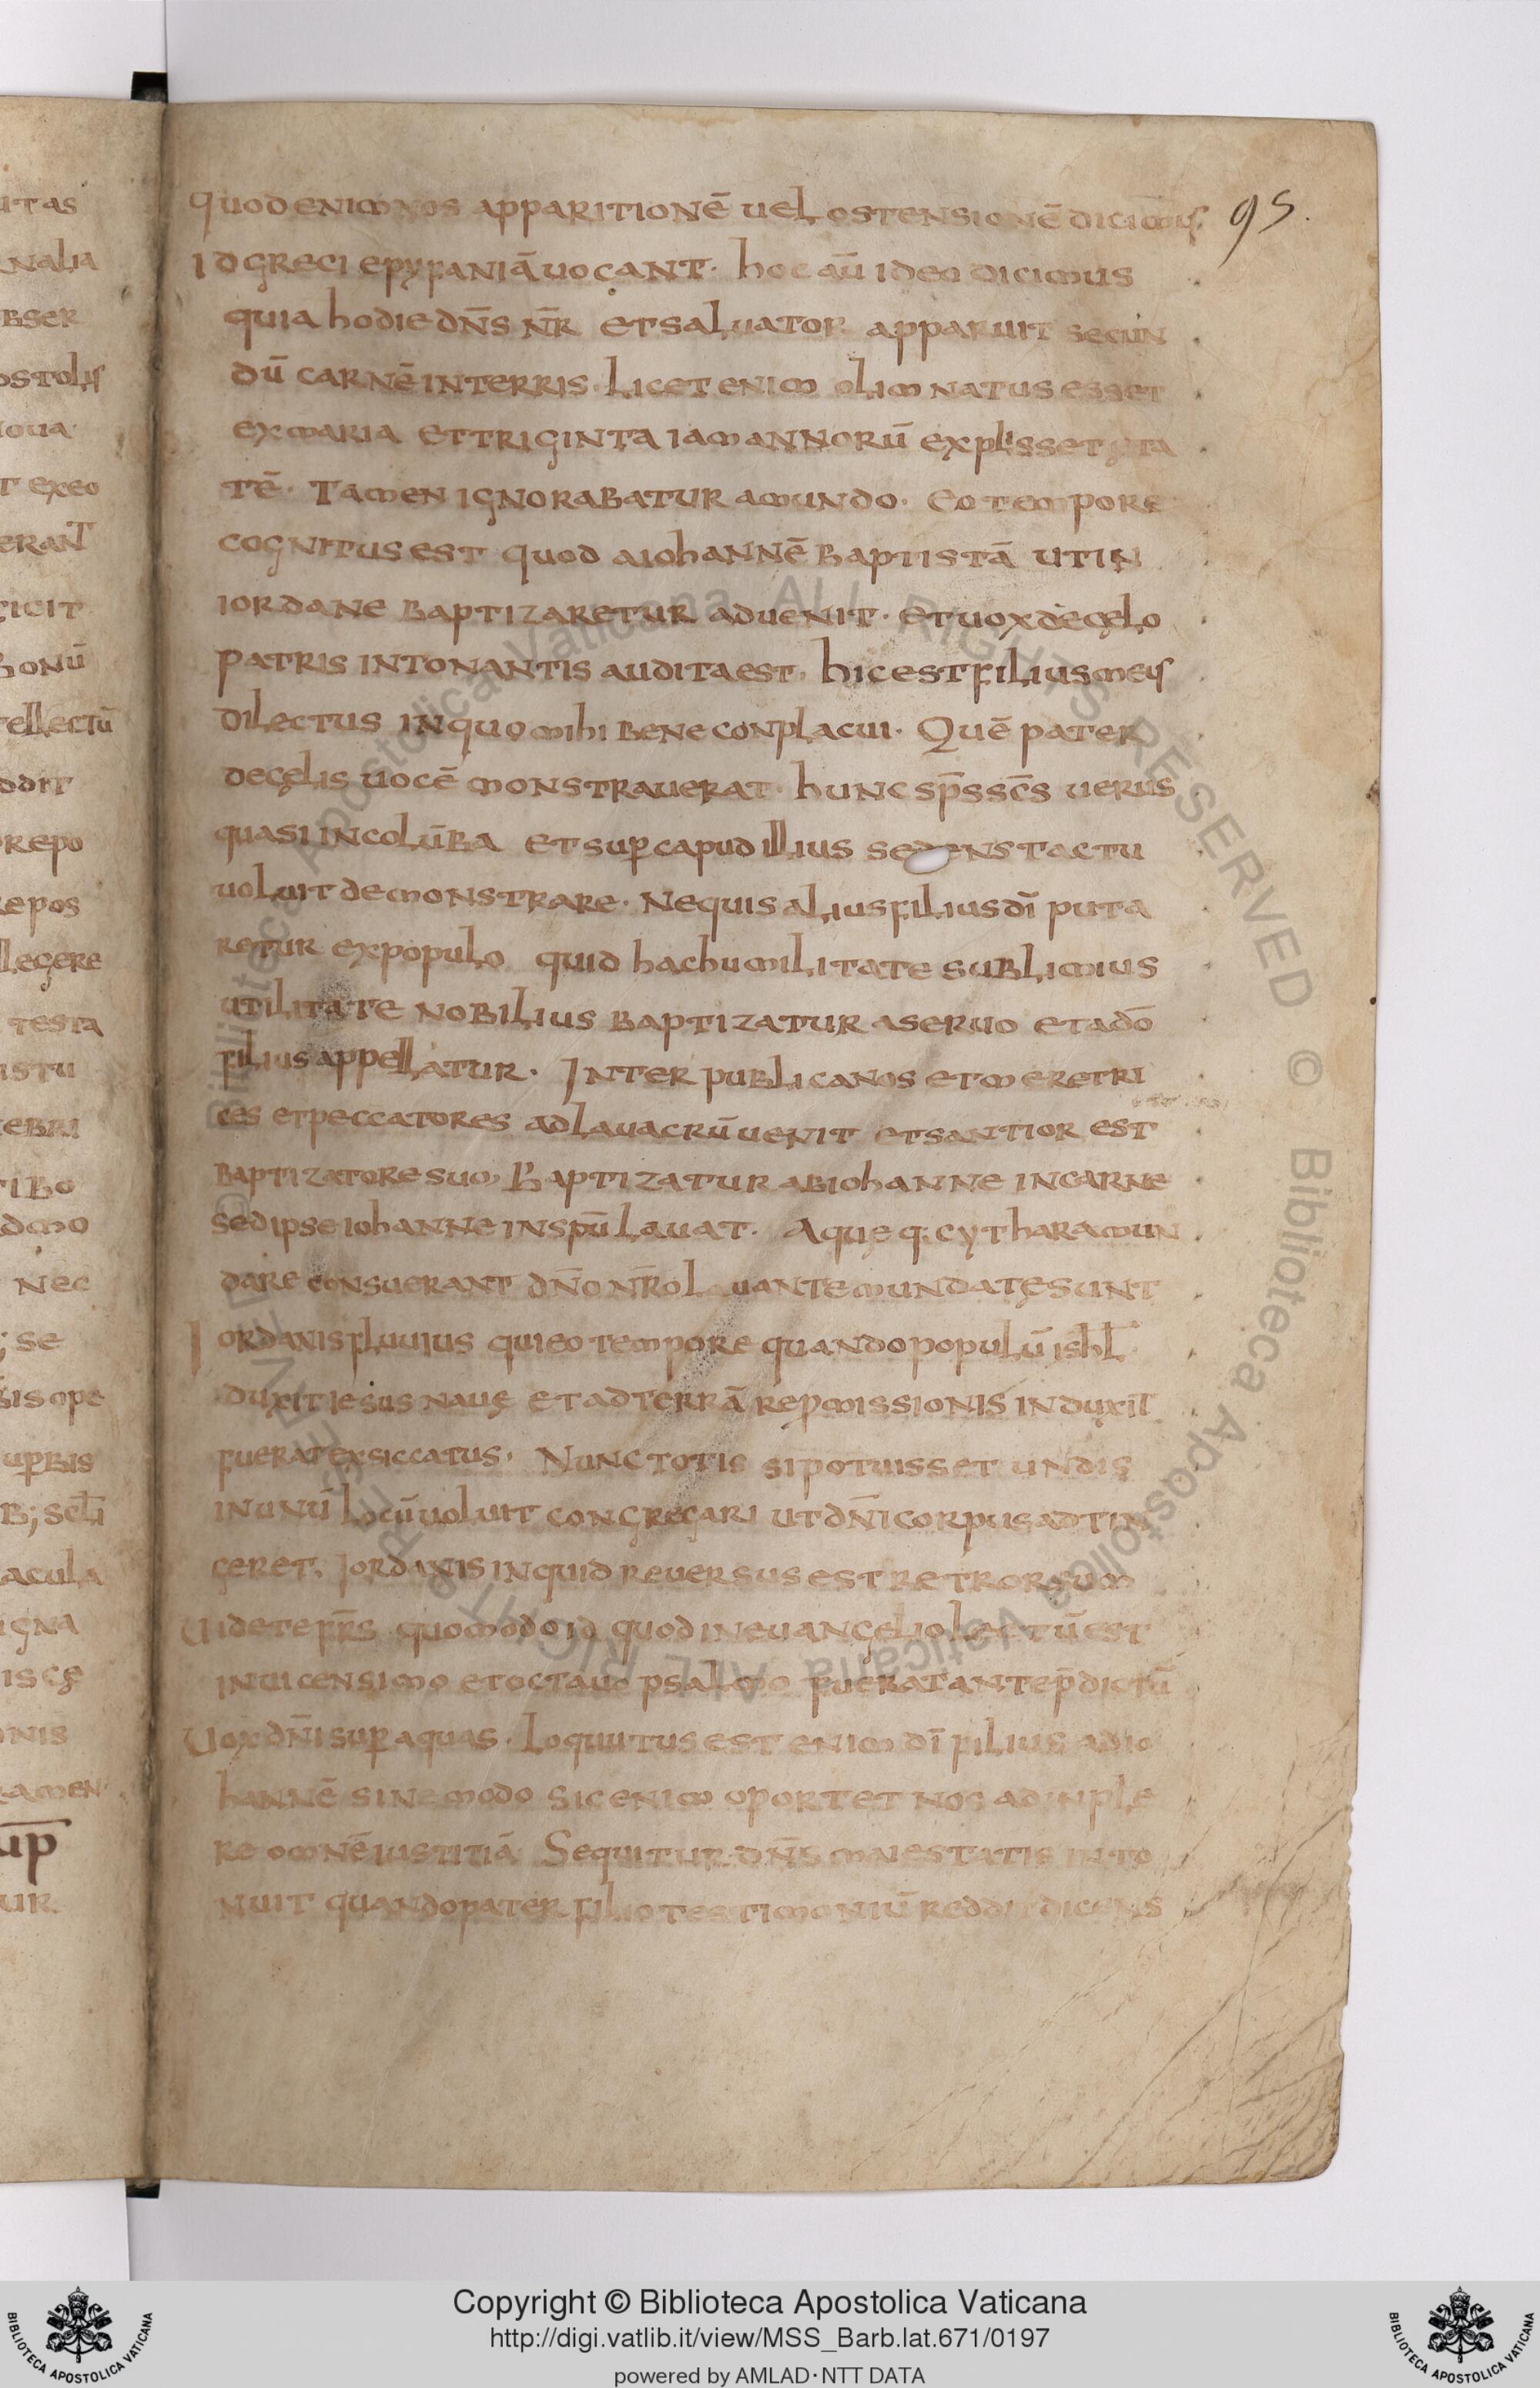 95.
quod enim nos apparitionē uel ostensionē dicimus
Id greci epyfaniā uocant. hoc aū ideo dicimus
quia hodie dn̄s nr̄ et saluator apparuit secun
dū carnē in terris. Licet enim olim natus esset
ex maria et triginta iam annorū explisset ęta
tē. Tamen ignorabatur a mundo. Eo tempore
cognitus est quod a iohannē baptistā ut in
iordane baptizaretur aduenit. et uox de cęlo
patris intonantis audita est. hic est filius meus
dilectus in quo mihi bene conplacui. Quē pater
de cęlis uocē monstrauerat. hunc sp̄s sc̄s uerus
quasi in colūba et suꝑ capud illius sedens tactu
uoluit demonstrare. Ne quis alius filius dī puta
retur ex populo quid hac humilitate sublimius
utilitate nobilius baptizatur a seruo et a dō
filius appellatur. Inter publicanos et meretri
ces et peccatores ad lauacrū uenit et santior est
baptizatore suo. Baptizatur ab iohanne in carne
sed ipse iohanne in spū lauat. Aque q; cythara mun
dare consuerant dn̄o nr̄o lauante mundatę sunt
Iordanis fluuius qui eo tempore quando populū ishl̄
duxit iesus nauę et ad terrā repromissionis induxit
fuerat exsiccatus. Nunc totis si potuisset undis
in unū locū uoluit congregari ut dn̄i corpus adtin
geret. Iordanis inquid reuersus est retrorsum
Uidete fr̄s quomodo id quod in euangelio lectū est
in uicensimo et octauo psalmo fuerat ante p̄dictū
Uox dn̄i suꝑ aquas. Loquutus est enim dī filius ad io
hannē sine modo sic enim oportet nos adinple
re omnē iustitiā. Sequitur dn̄s maiestatis into
nuit quando pater filio testimoniū reddit dicens
Copyright © Biblioteca Apostolica Vaticana
http://digi.vatlib.it/view/MSS_Barb.lat.671/0197
powered by AMLAD·NTT DATA